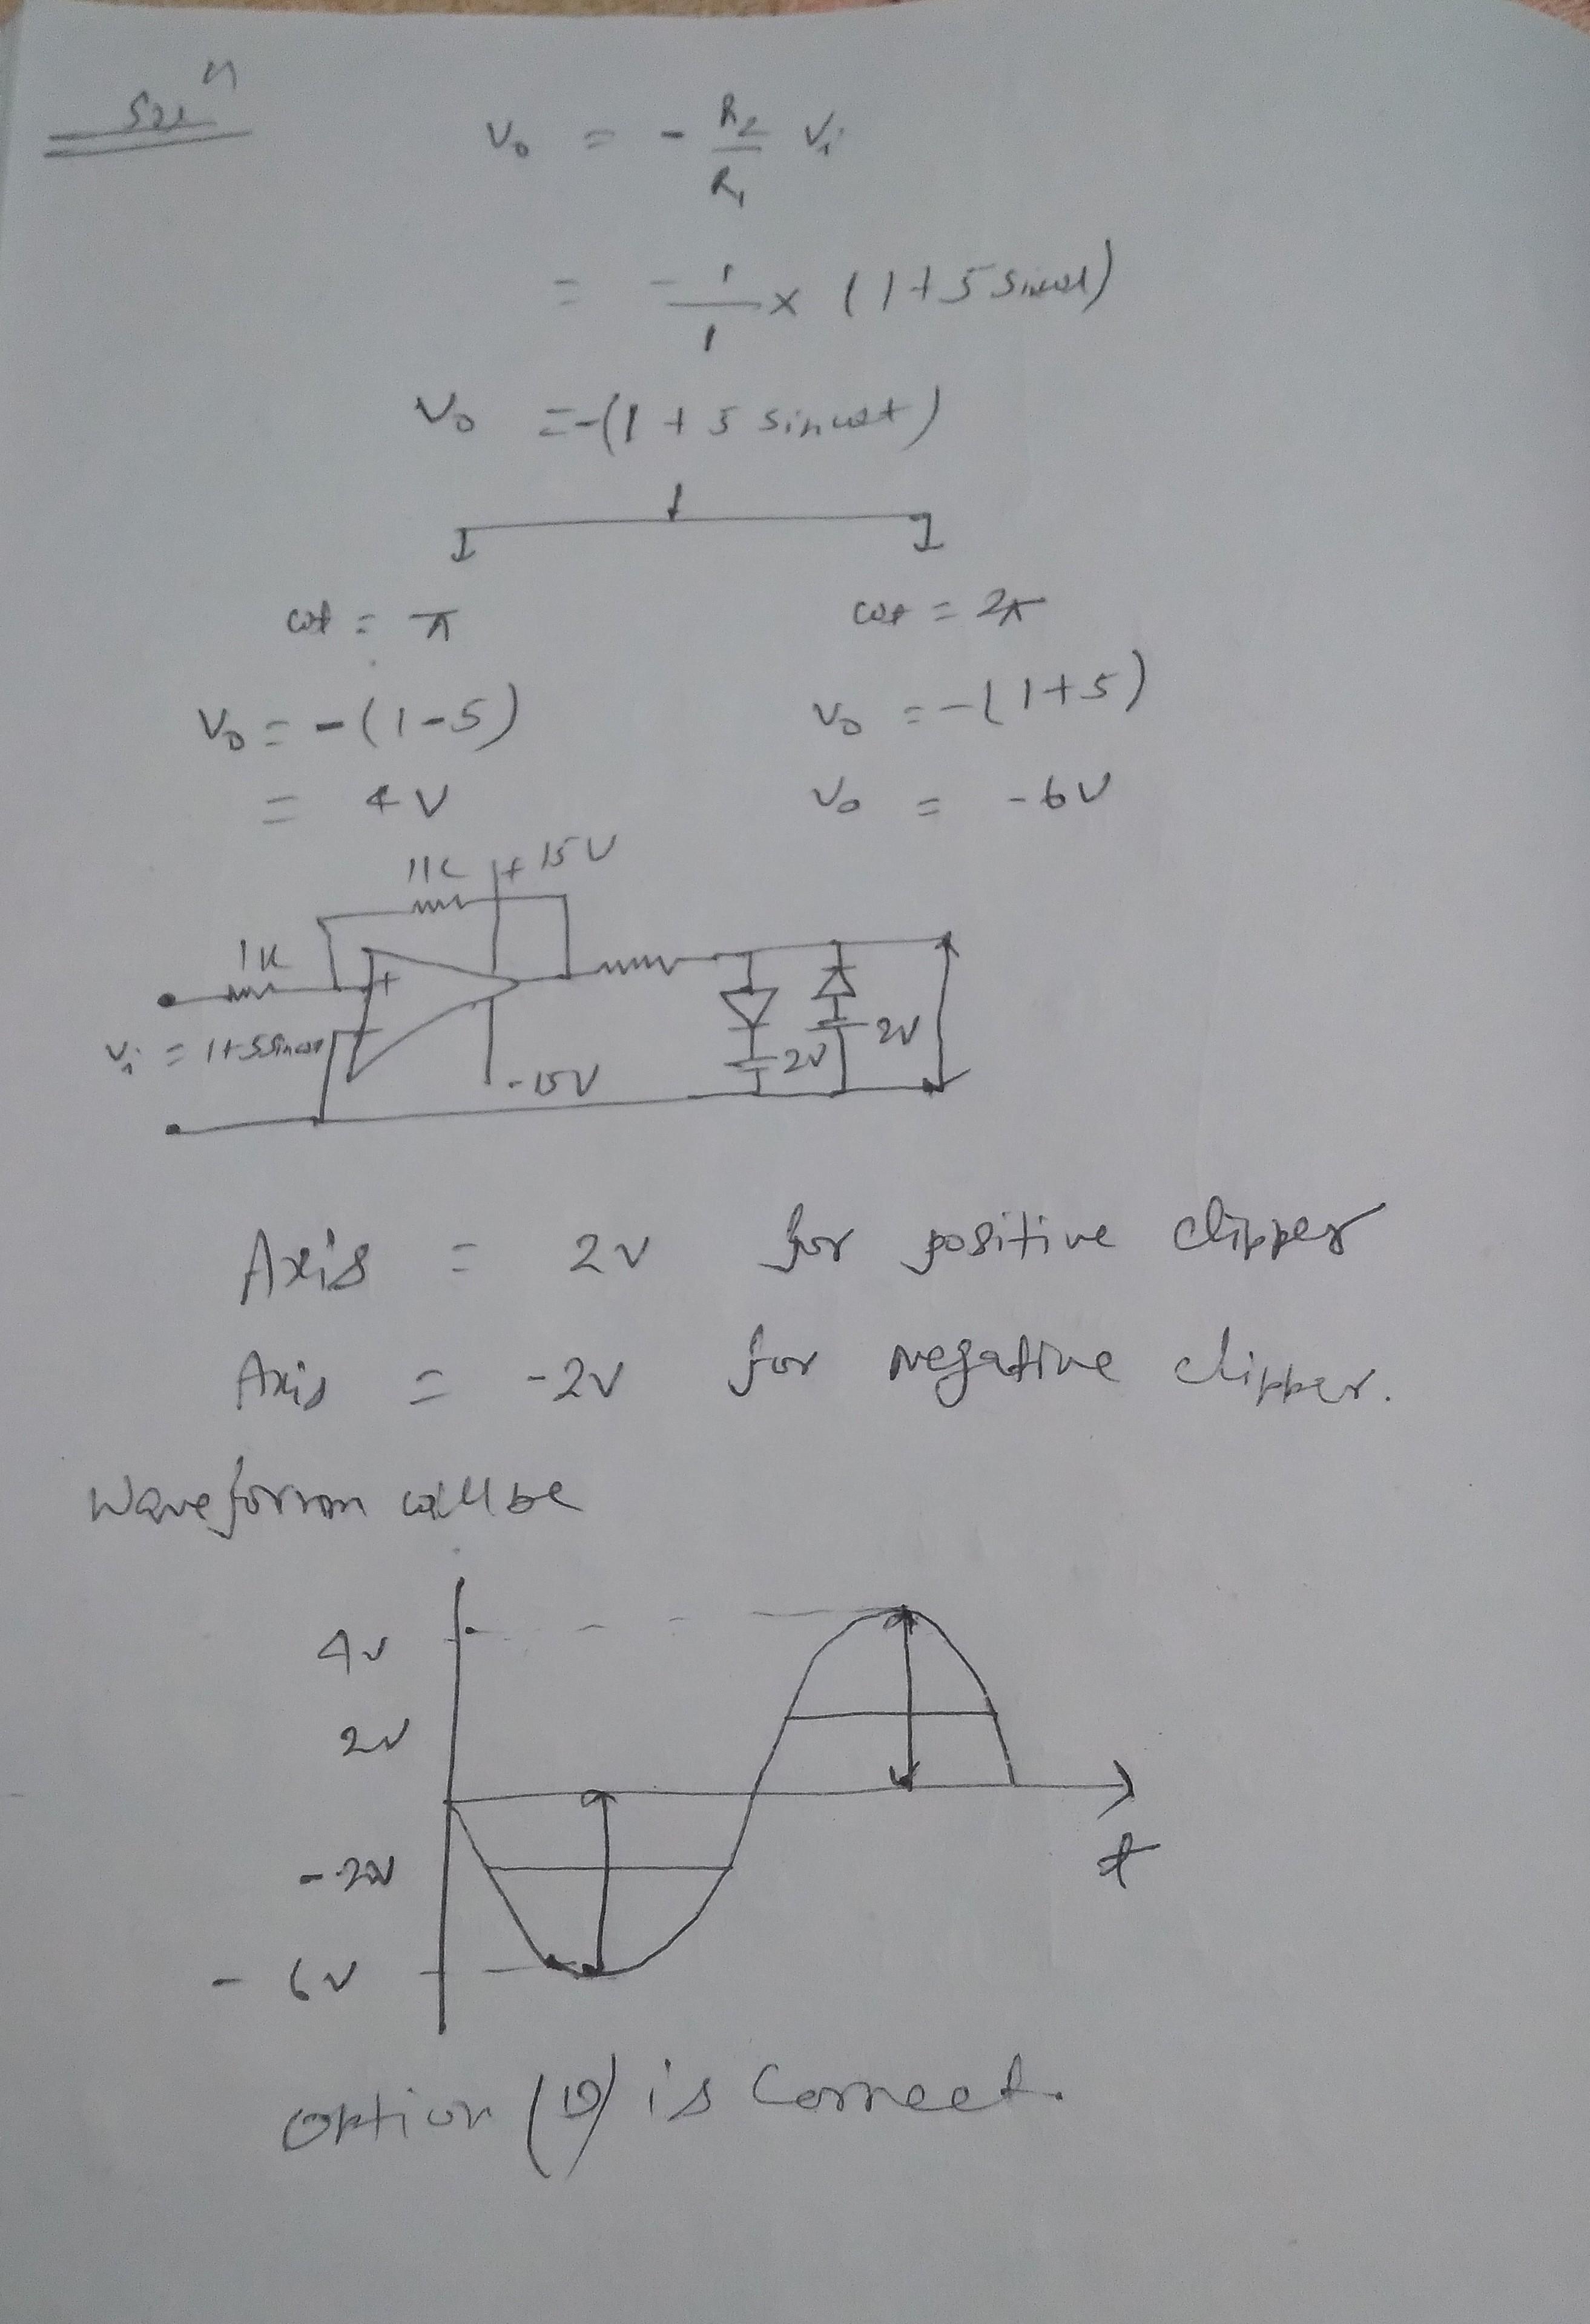 Solⁿ
V₀ = - R₂/R₁ Vᵢ
= - 1/1 × (1+5 sinωt)
V₀ = -(1 + 5 sinωt)
ωt = π ωt = 2π
V₀ = -(1-5) V₀ = -(1+5)
= 4V V₀ = -6V
1K +15V
1K
+
Vᵢ = 1+5sinωt
2V 2V
-15V
Axis = 2V for positive clipper
Axis = -2V for negative clipper.
Waveform will be
4V
2V
-2V
t
- 6V
option (D) is correct.